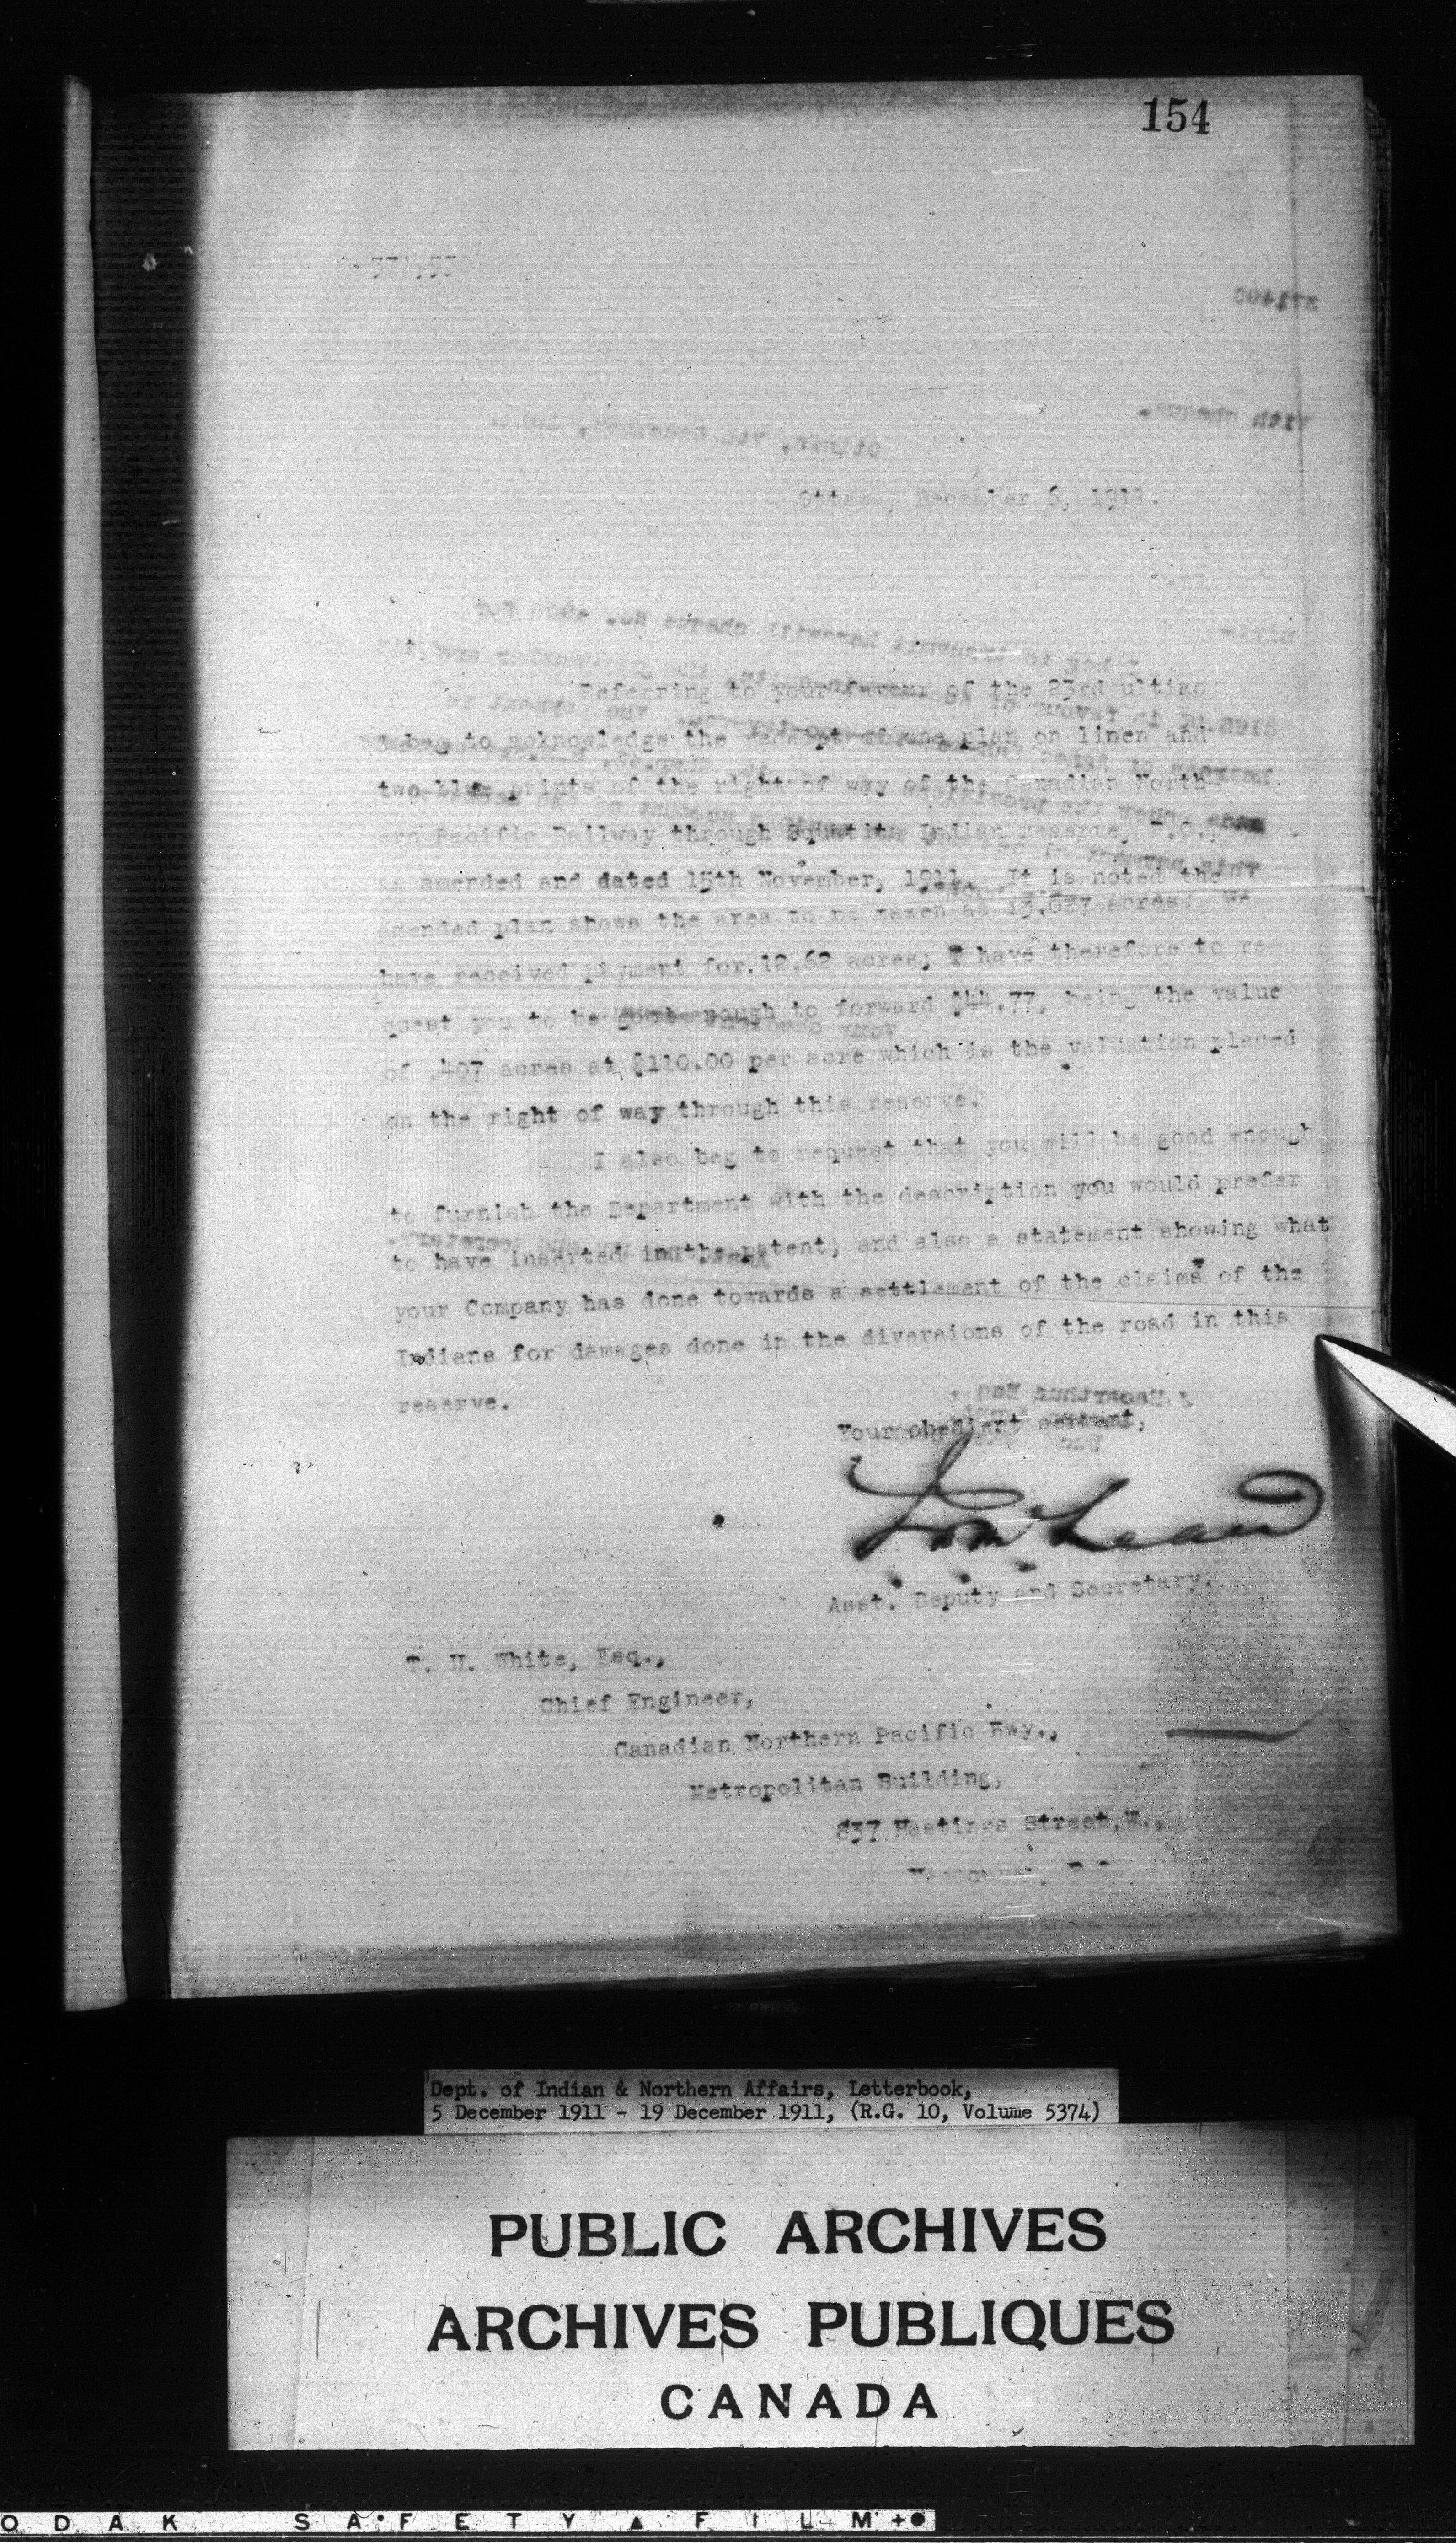 154
371,530
Ottawa, December 6, 1911.
Referring to your favour of the 23rd ultimo
I beg to acknowledge the receipt of one plan on linen and
two blue prints of the right of way of the Canadian North-
ern Pacific Railway through Squatits Indian reserve, B.C.,
as amended and dated 15th November, 1911. It is noted the
amended plan shows the area to be taken as 13.027 acres; We
have received payment for 12.62 acres; I have therefore to re-
quest you to be good enough to forward $44.77, being the value
of .407 acres at $110.00 per acre which is the valuation placed
on the right of way through this reserve.
I also beg to request that you will be good enough
to furnish the Department with the description you would prefer
to have inserted in the patent; and also a statement showing what
your Company has done towards a settlement of the claims of the
Indians for damages done in the diversions of the road in this
reserve.
Your obedient servant,
Asst. Deputy and Secretary.
T. H. White, Esq.,
Chief Engineer,
Canadian Northern Pacific Rwy.,
Metropolitan Building,
837 Hastings Street, W.,
Dept. of Indian & Northern Affairs, Letterbook,
5 December 1911 - 19 December 1911, (R.G. 10, Volume 5374)
PUBLIC ARCHIVES
ARCHIVES PUBLIQUES
CANADA
ODAK SAFETY FILM